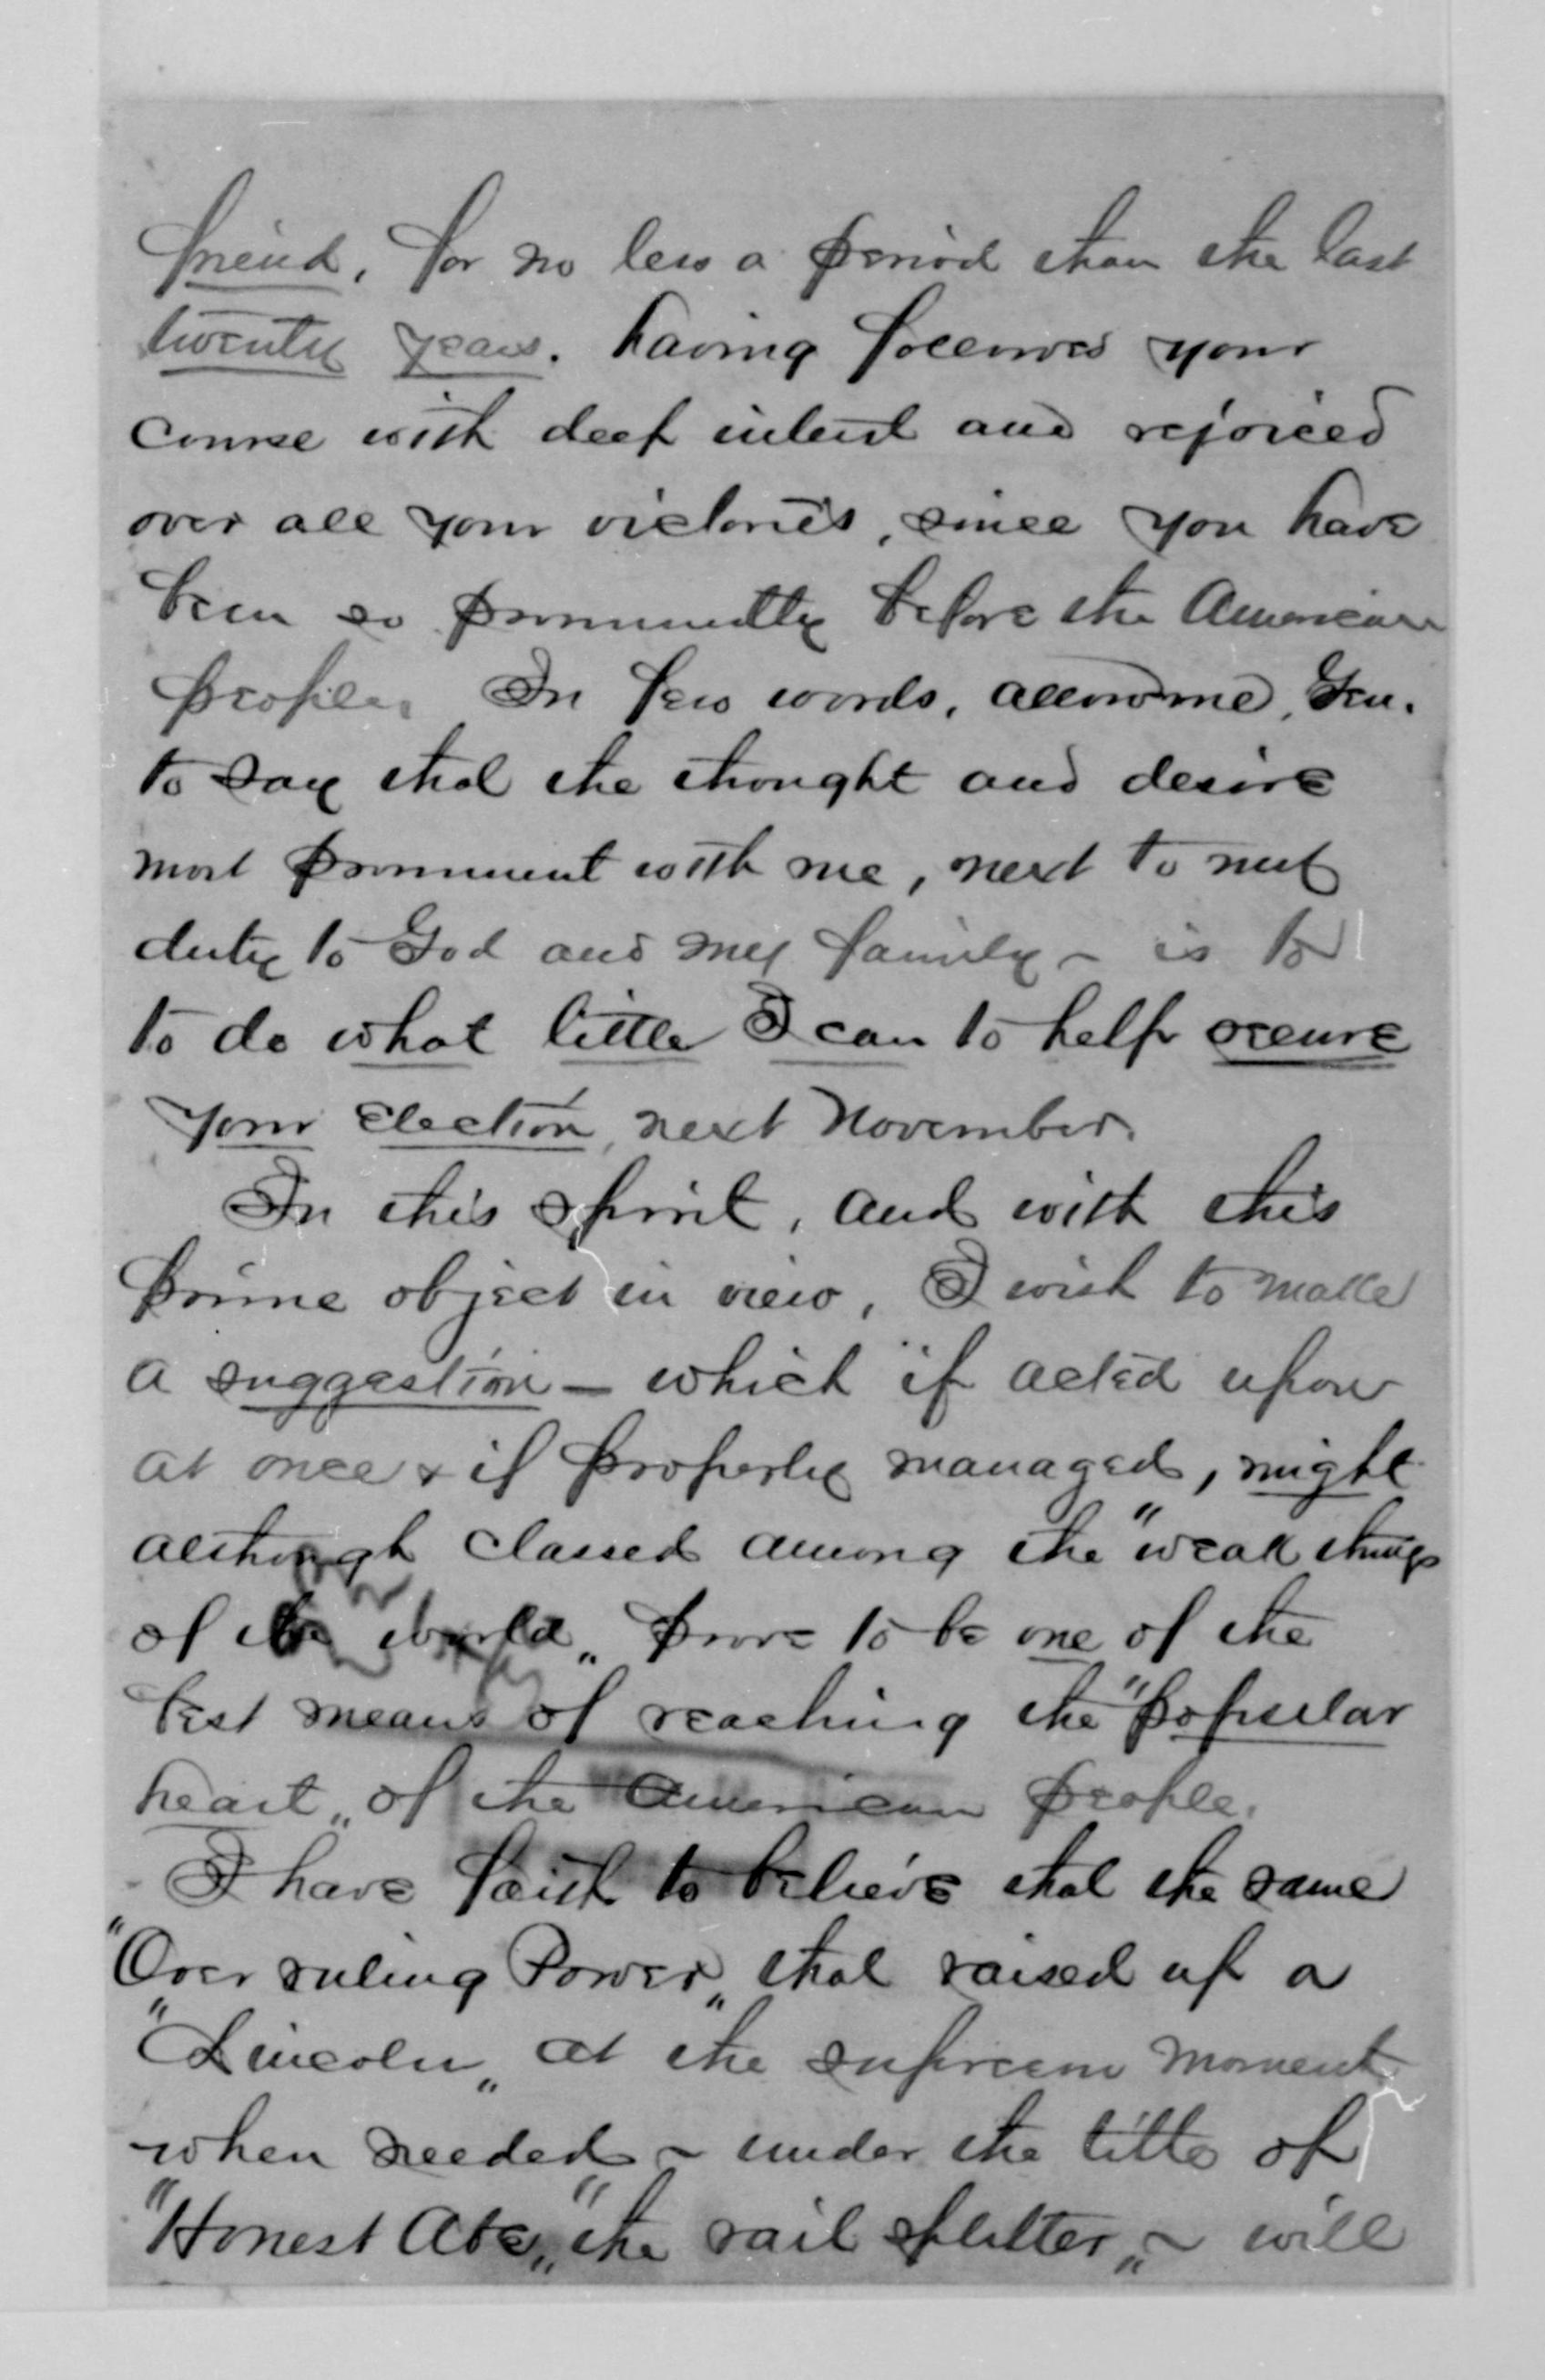 friend, for no less a period than the last
twenty years. having followed your
course with deep interest and rejoiced
over all your victories, since you have
been so prominently before the American
people. In few words, allow me, Gen.
to say that the thought and desire
most prominent with me, next to my
duty to God and my family - is to
to do what little I can to help secure
your election, next November.
In this spirit, and with this
prime object in view, I wish to make
a suggestion - which if acted upon
at once & if properly managed, might
although classed among the "weak things
of the world" prove to be one of the
best means of reaching the "popular
heart" of the American people.
I have faith to believe that the same
"Over ruling Power" that raised up a
"Lincoln" at the supreem moment
when needed - under the title of
"Honest Abe," "the rail splitter" - will